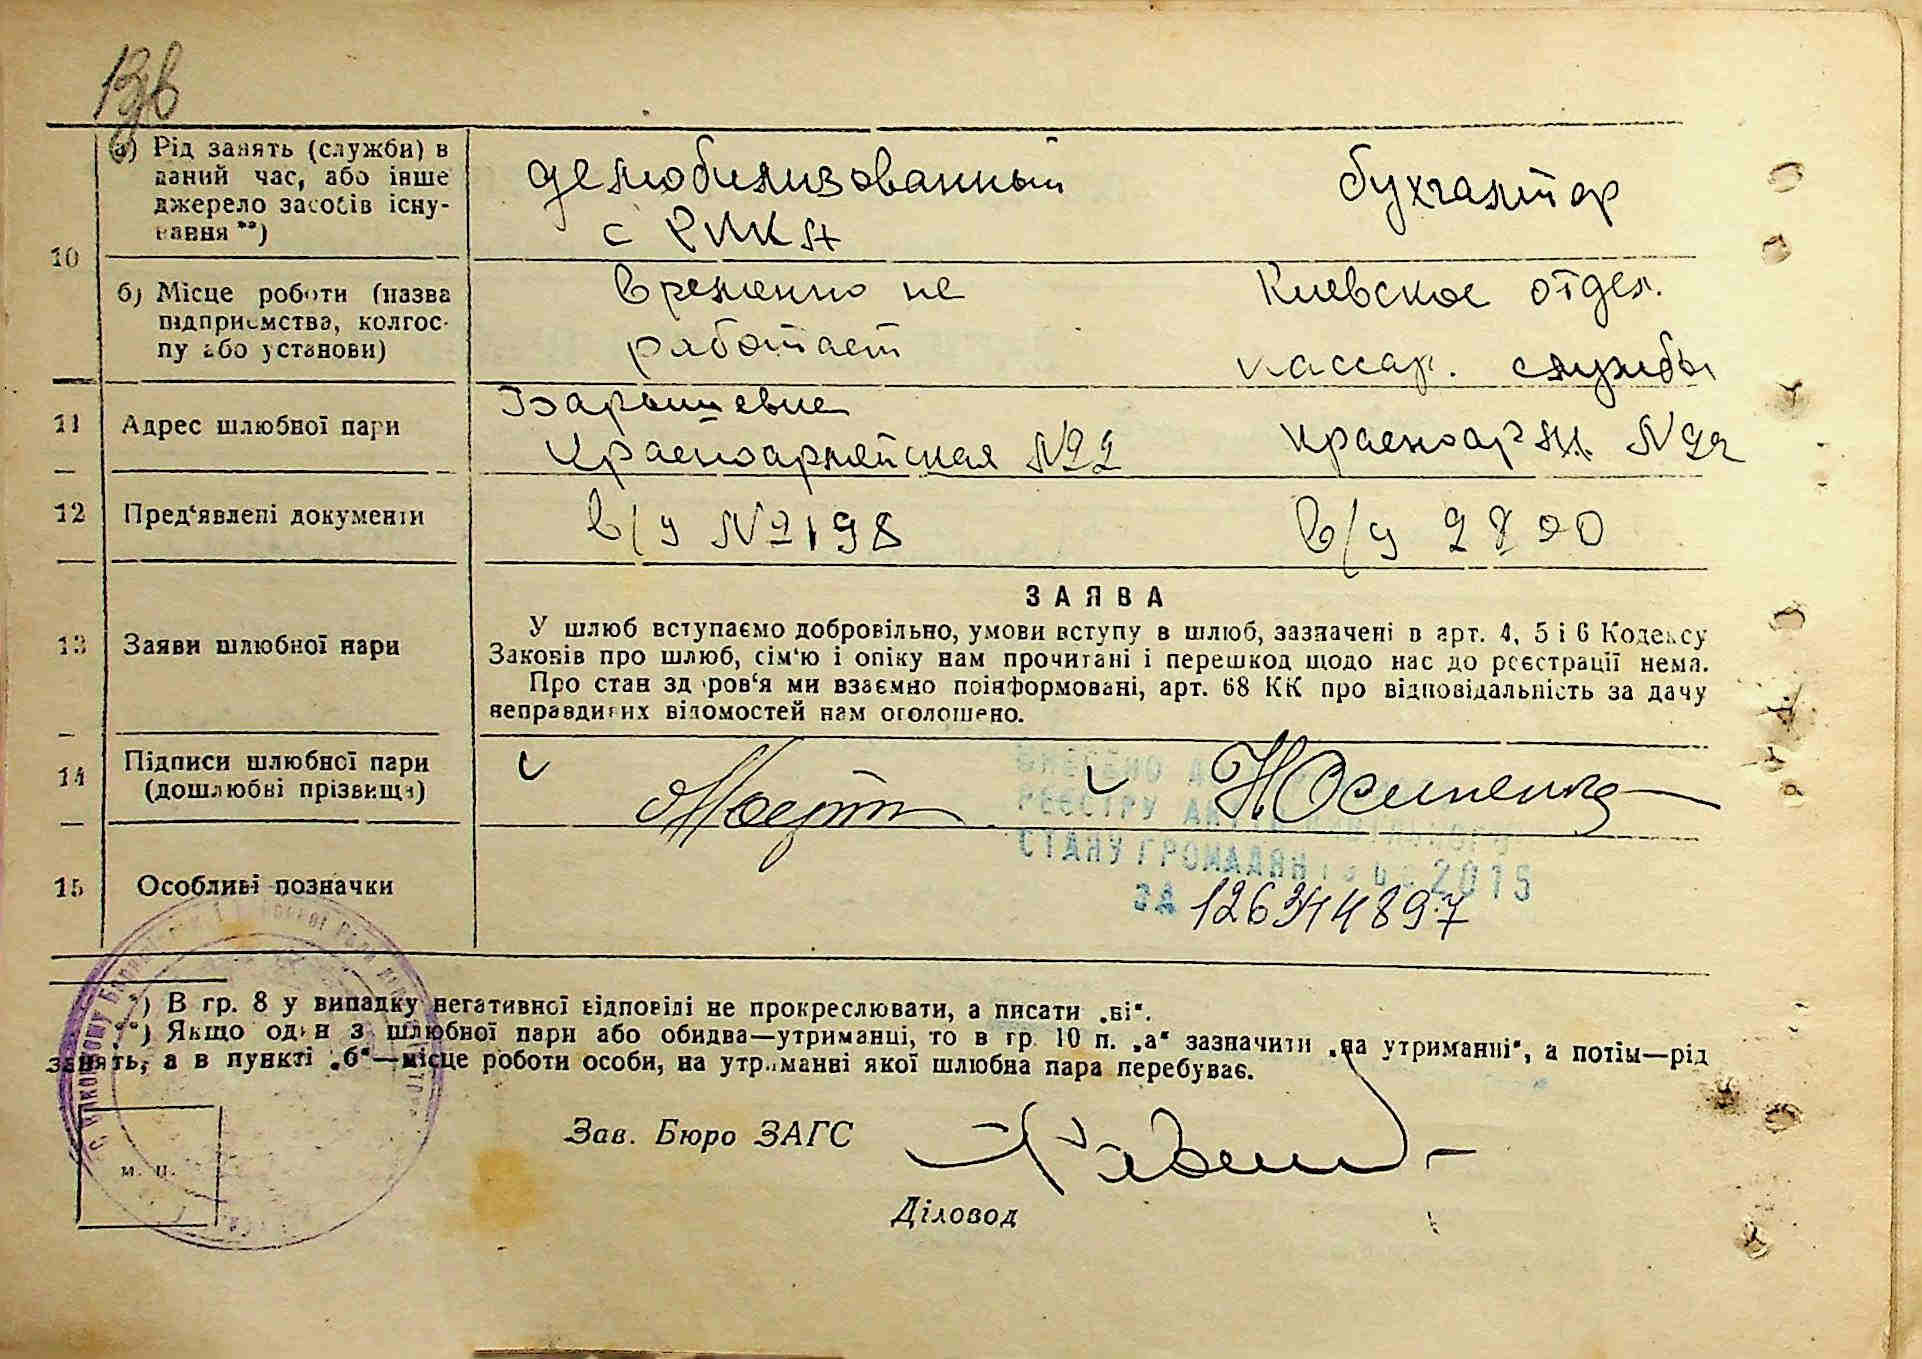 а) Рід занять (служби) в
даний час, або інше
джерело засобів існу-
вання **)
демобилизованный
с РККА
бухгалтер
10
б) Місце роботи (назва
підприємства, колгос-
пу або установи)
временно не
работает
Киевское отдел.
кассар. службы
11
Адрес шлюбної пари
Барышевка
Красноармейская №22
Красноарм. №22
12
Пред‘явлені документи
в/у №2198
в/у 2800
13
Заяви шлюбної пари
ЗАЯВА
У шлюб вступаємо добровільно, умови вступу в шлюб, зазначені в арт. 4, 5 і 6 Кодексу
Законів про шлюб, сім‘ю і опіку нам прочитані і перешкод щодо нас до реєстрації нема.
Про стан здоров‘я ми взаємно поінформовані, арт. 68 КК про відповідальність за дачу
неправдивих відомостей нам оголошено.
14
Підписи шлюбної пари
(дошлюбні прізвища)
НОсипенко
ВНЕСЕНО ДО
РЕЄСТРУ АКТІВ ЦИВІЛЬНОГО
СТАНУ ГРОМАДЯН 2015
ЗА
15
Особливі позначки
*) В гр. 8 у випадку негативної відповіді не прокреслювати, а писати „ні“.
**) Якщо один з шлюбної пари або обидва—утриманці, то в гр. 10 п. „а“ зазначити „на утриманні“, а потім—рід
занять, а в пункті „б“—місце роботи особи, на утриманні якої шлюбна пара перебуває.
Зав. Бюро ЗАГС
м. п.
Діловод